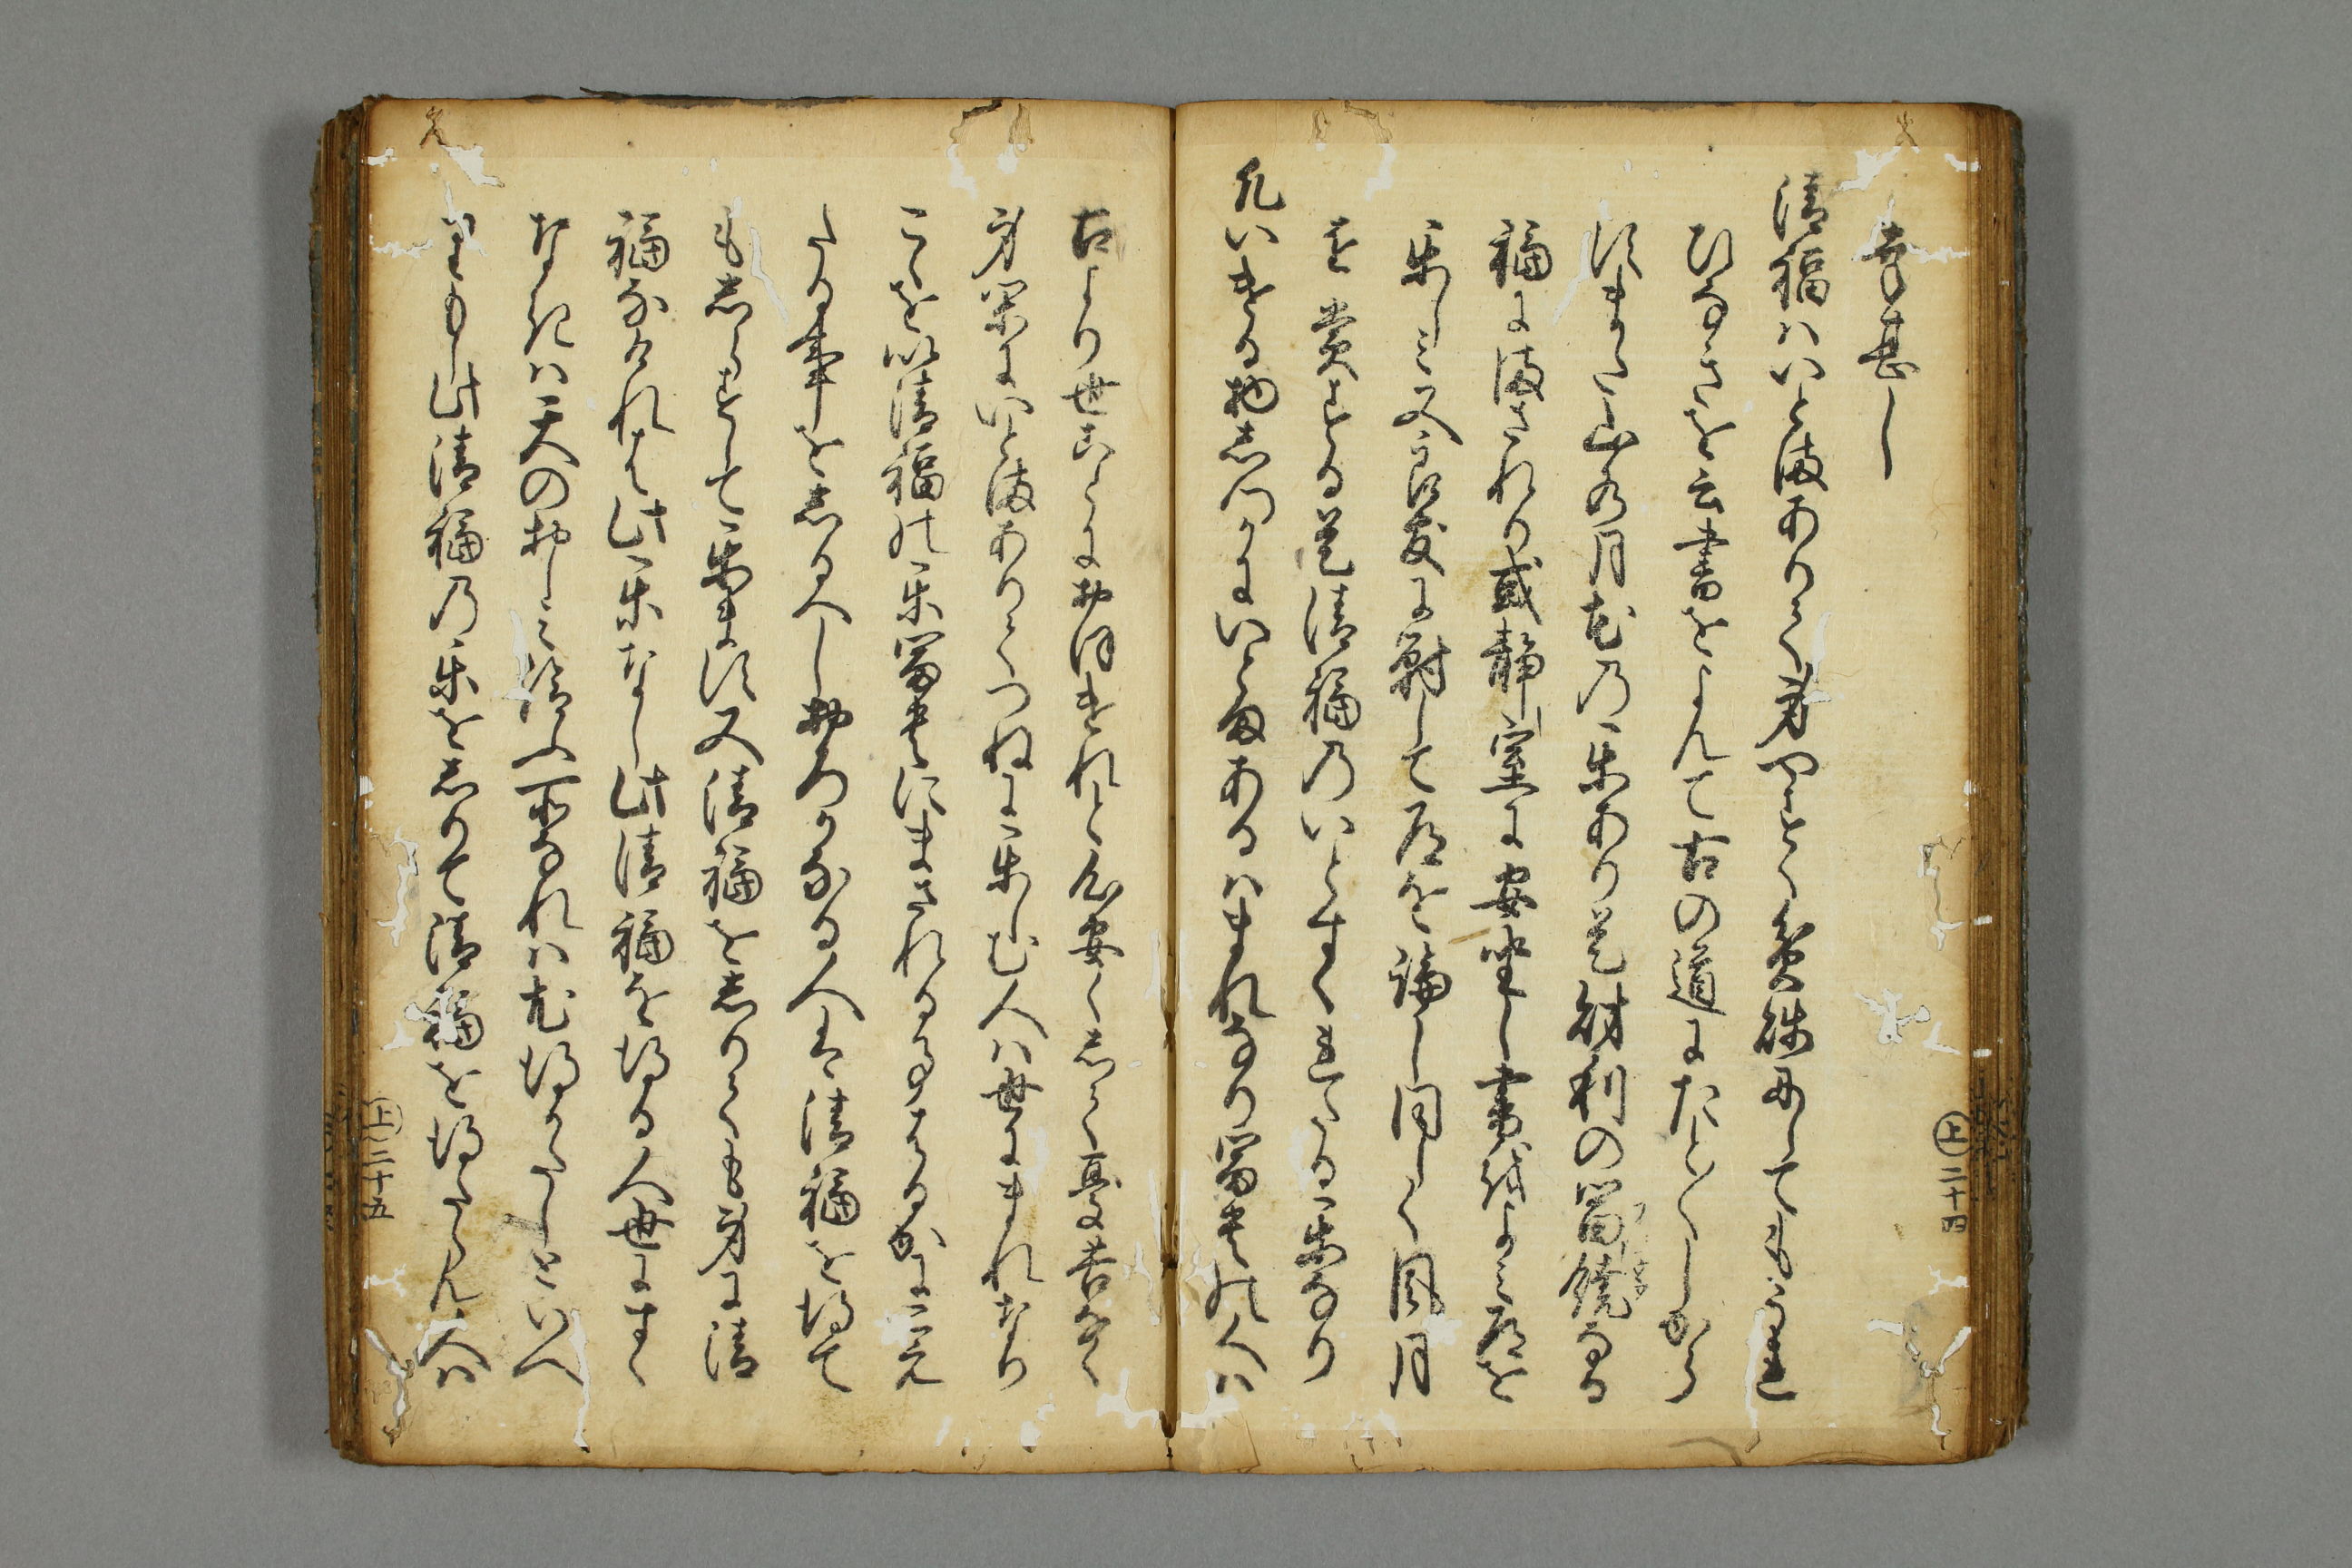 幸甚し
清福ハいとまありて身やすく貧賤にしてもうれ
ひなきを云書をよんて古の道にたとしから
すまた山水月花の楽あり是財利の富饒なる
福にまされり或静室に安坐し書をよミ道を
楽しミ又良友に對して道を論し同しく風月
を賞する是清福のいとすくれたる楽なり
凡いける物しつかにいとまあるハまれなり富貴の人ハ
上二十四
古より世ことにおほけれと心安くして憂苦なく
身閑にいとまありてつねに楽しむ人ハ世にまれなり
こゝを以清福の楽富貴にまされる事はるかにこえ
たる事をしるへしおろかなる人は清福を得て
もしらすして楽ます又清福をしりても身に清
福なけれは此楽なし此清福を得る人世にすく
なきハ天のおしミ給ふ所なれハ尤得かたしといへ
りもし此清福の楽をしりて清福を得たらん人ハ
上二十五